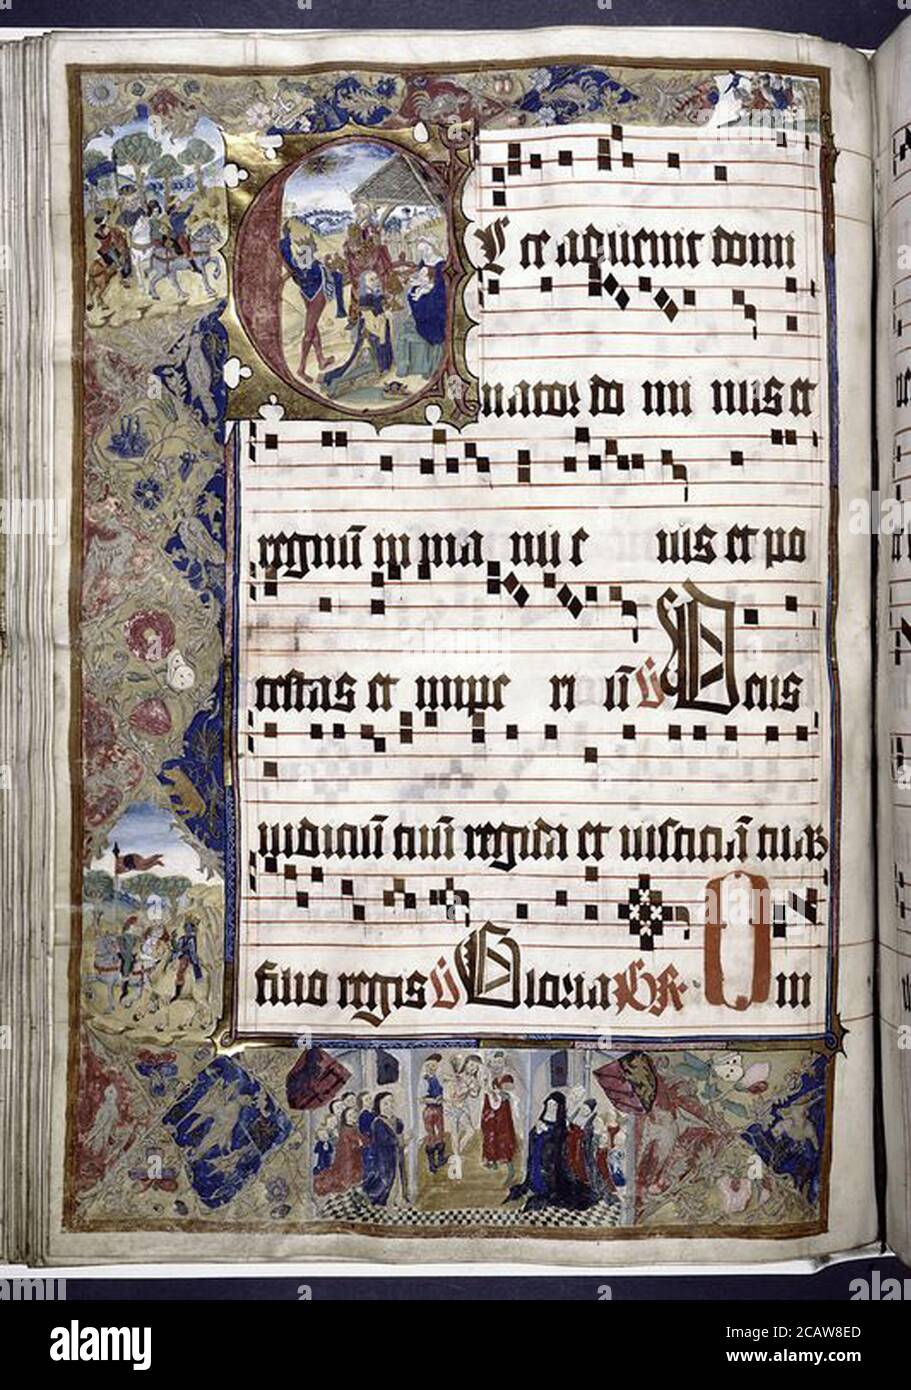 ECce aduenit domi
nator do mi nus et
regnū in ma nu e ius et po
testas et impe ri ū V Deus
iudiciū tuū regi da et iusticiā tuā
filio regis V Gloria GR. Om
alamy
Image ID: 2CAW8ED
www.alamy.com